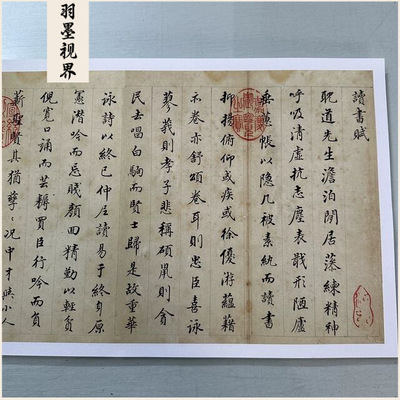 羽墨视界
讀書賦
耽道先生澹泊閑居藻練精神
呼吸清虛抗志塵表戢形陋廬
垂蕙帳以隱几被素紈而讀書
抑揚俯仰或疾或徐優游蘊藉
亦卷亦舒頌卷耳則忠臣喜詠
蓼莪則孝子悲稱碩鼠則貪
民去唱白駒而賢士歸是故重華
詠詩以終已仲尼讀易于終身原
憲潛吟而忘賤顏回精勤以輕貧
倪寬口誦而芸耨買臣行吟而負
薪聖賢其猶孳々況中才與小人